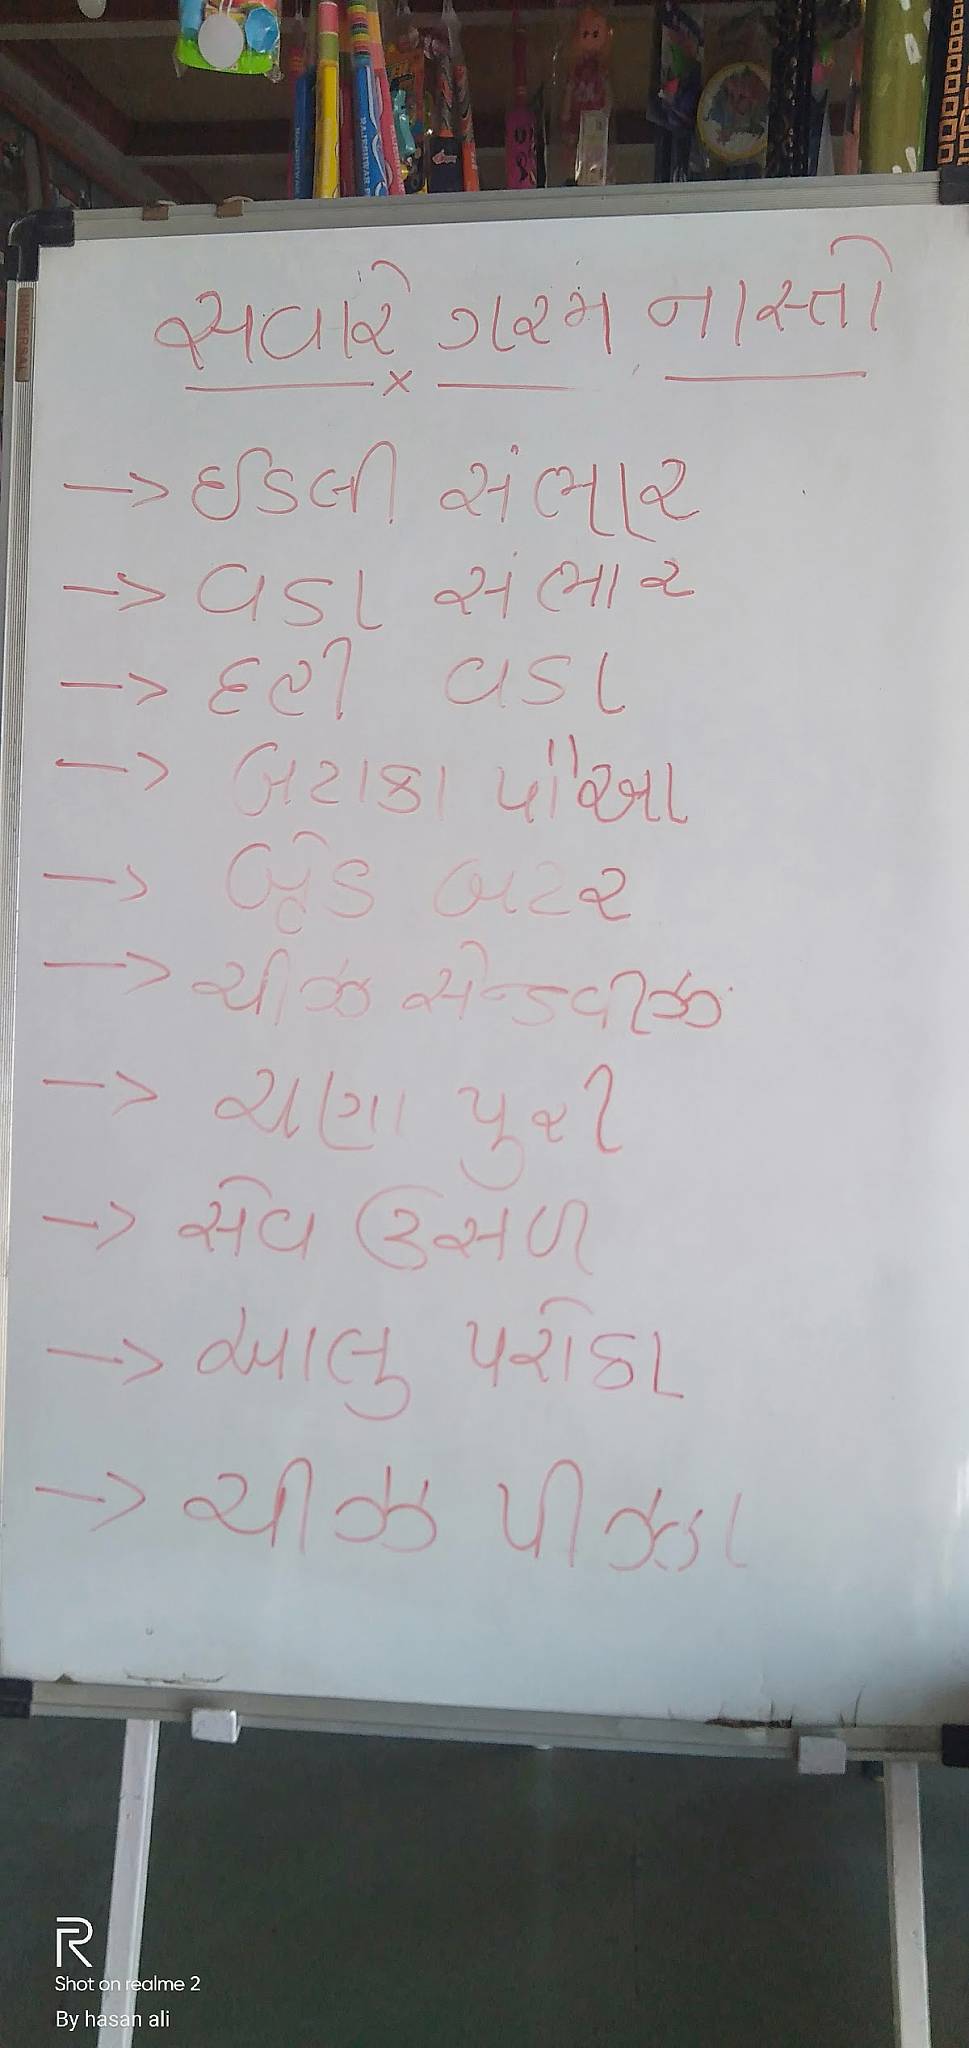 સવારે ગરમ નાસ્તો
x
→ ઈડલી સંભાર
→ વડા સંભાર
→ દહી વડા
→ બટાકા પૌઆ
→ બ્રેડ બટર
→ ચીઝ સેન્ડવીઝ
→ ચણા પુરી
→ સેવ ઉસળ
→ આલુ પરોઠા
→ ચીઝ પીઝા
R
Shot on realme 2
By hasan ali